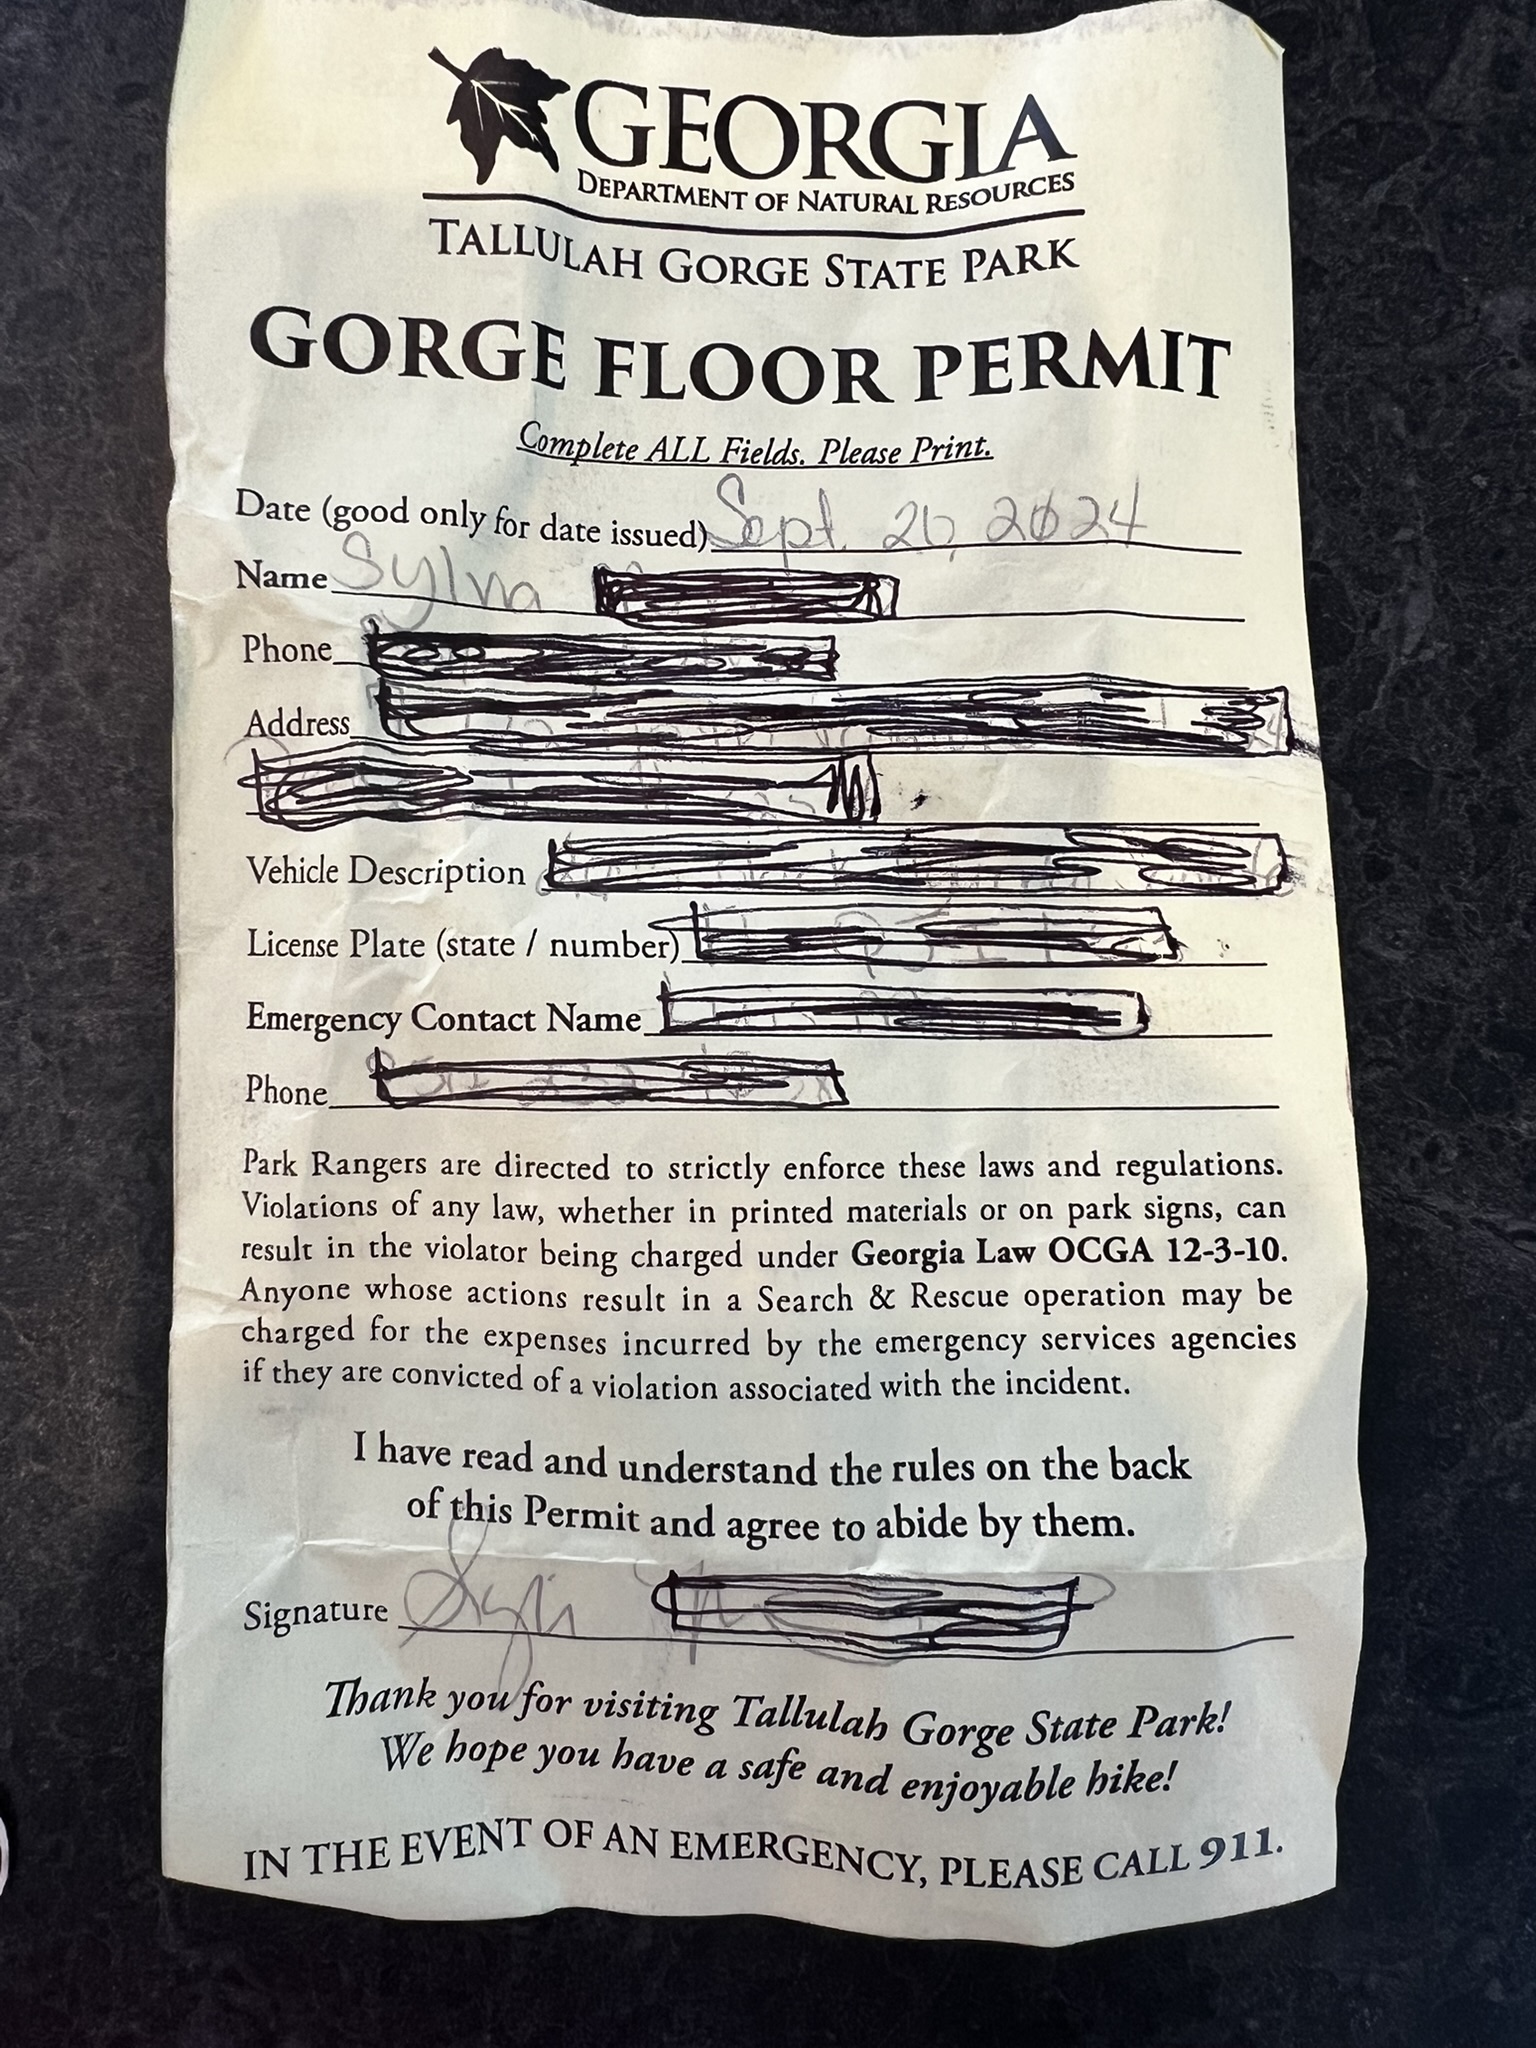 GEORGIA
DEPARTMENT OF NATURAL RESOURCES
TALLULAH GORGE STATE PARK
GORGE FLOOR PERMIT
Complete ALL Fields. Please Print.
Date (good only for date issued) Sept. 20, 2024
Name Sylvia
Phone
Address
Vehicle Description
License Plate (state / number)
Emergency Contact Name
Phone
Park Rangers are directed to strictly enforce these laws and regulations.
Violations of any law, whether in printed materials or on park signs, can
result in the violator being charged under Georgia Law OCGA 12-3-10.
Anyone whose actions result in a Search & Rescue operation may be
charged for the expenses incurred by the emergency services agencies
if they are convicted of a violation associated with the incident.
I have read and understand the rules on the back
of this Permit and agree to abide by them.
Signature
Thank you for visiting Tallulah Gorge State Park!
We hope you have a safe and enjoyable hike!
IN THE EVENT OF AN EMERGENCY, PLEASE CALL 911.